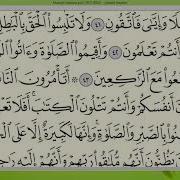 وَإِيَّٰيَ فَٱتَّقُونِ ٤١ وَلَا تَلْبِسُوا۟ ٱلْحَقَّ بِٱلْبَٰطِلِ
وَأَنتُمْ تَعْلَمُونَ ٤٢ وَأَقِيمُوا۟ ٱلصَّلَوٰةَ وَءَاتُوا۟
عُوا۟ مَعَ ٱلرَّٰكِعِينَ ٤٣ ۞ أَتَأْمُرُونَ ٱلنَّا
أَنفُسَكُمْ وَأَنتُمْ تَتْلُونَ ٱلْكِتَٰبَ أَفَلَا تَعْ
وا۟ بِٱلصَّبْرِ وَٱلصَّلَوٰةِ وَإِنَّهَا لَكَبِيرَةٌ إِلَّا عَلَى ٱلْ
يَظُنُّونَ أَنَّهُم مُّلَٰقُوا۟ رَبِّهِمْ وَأَنَّهُمْ إِلَيْهِ رَٰجِ